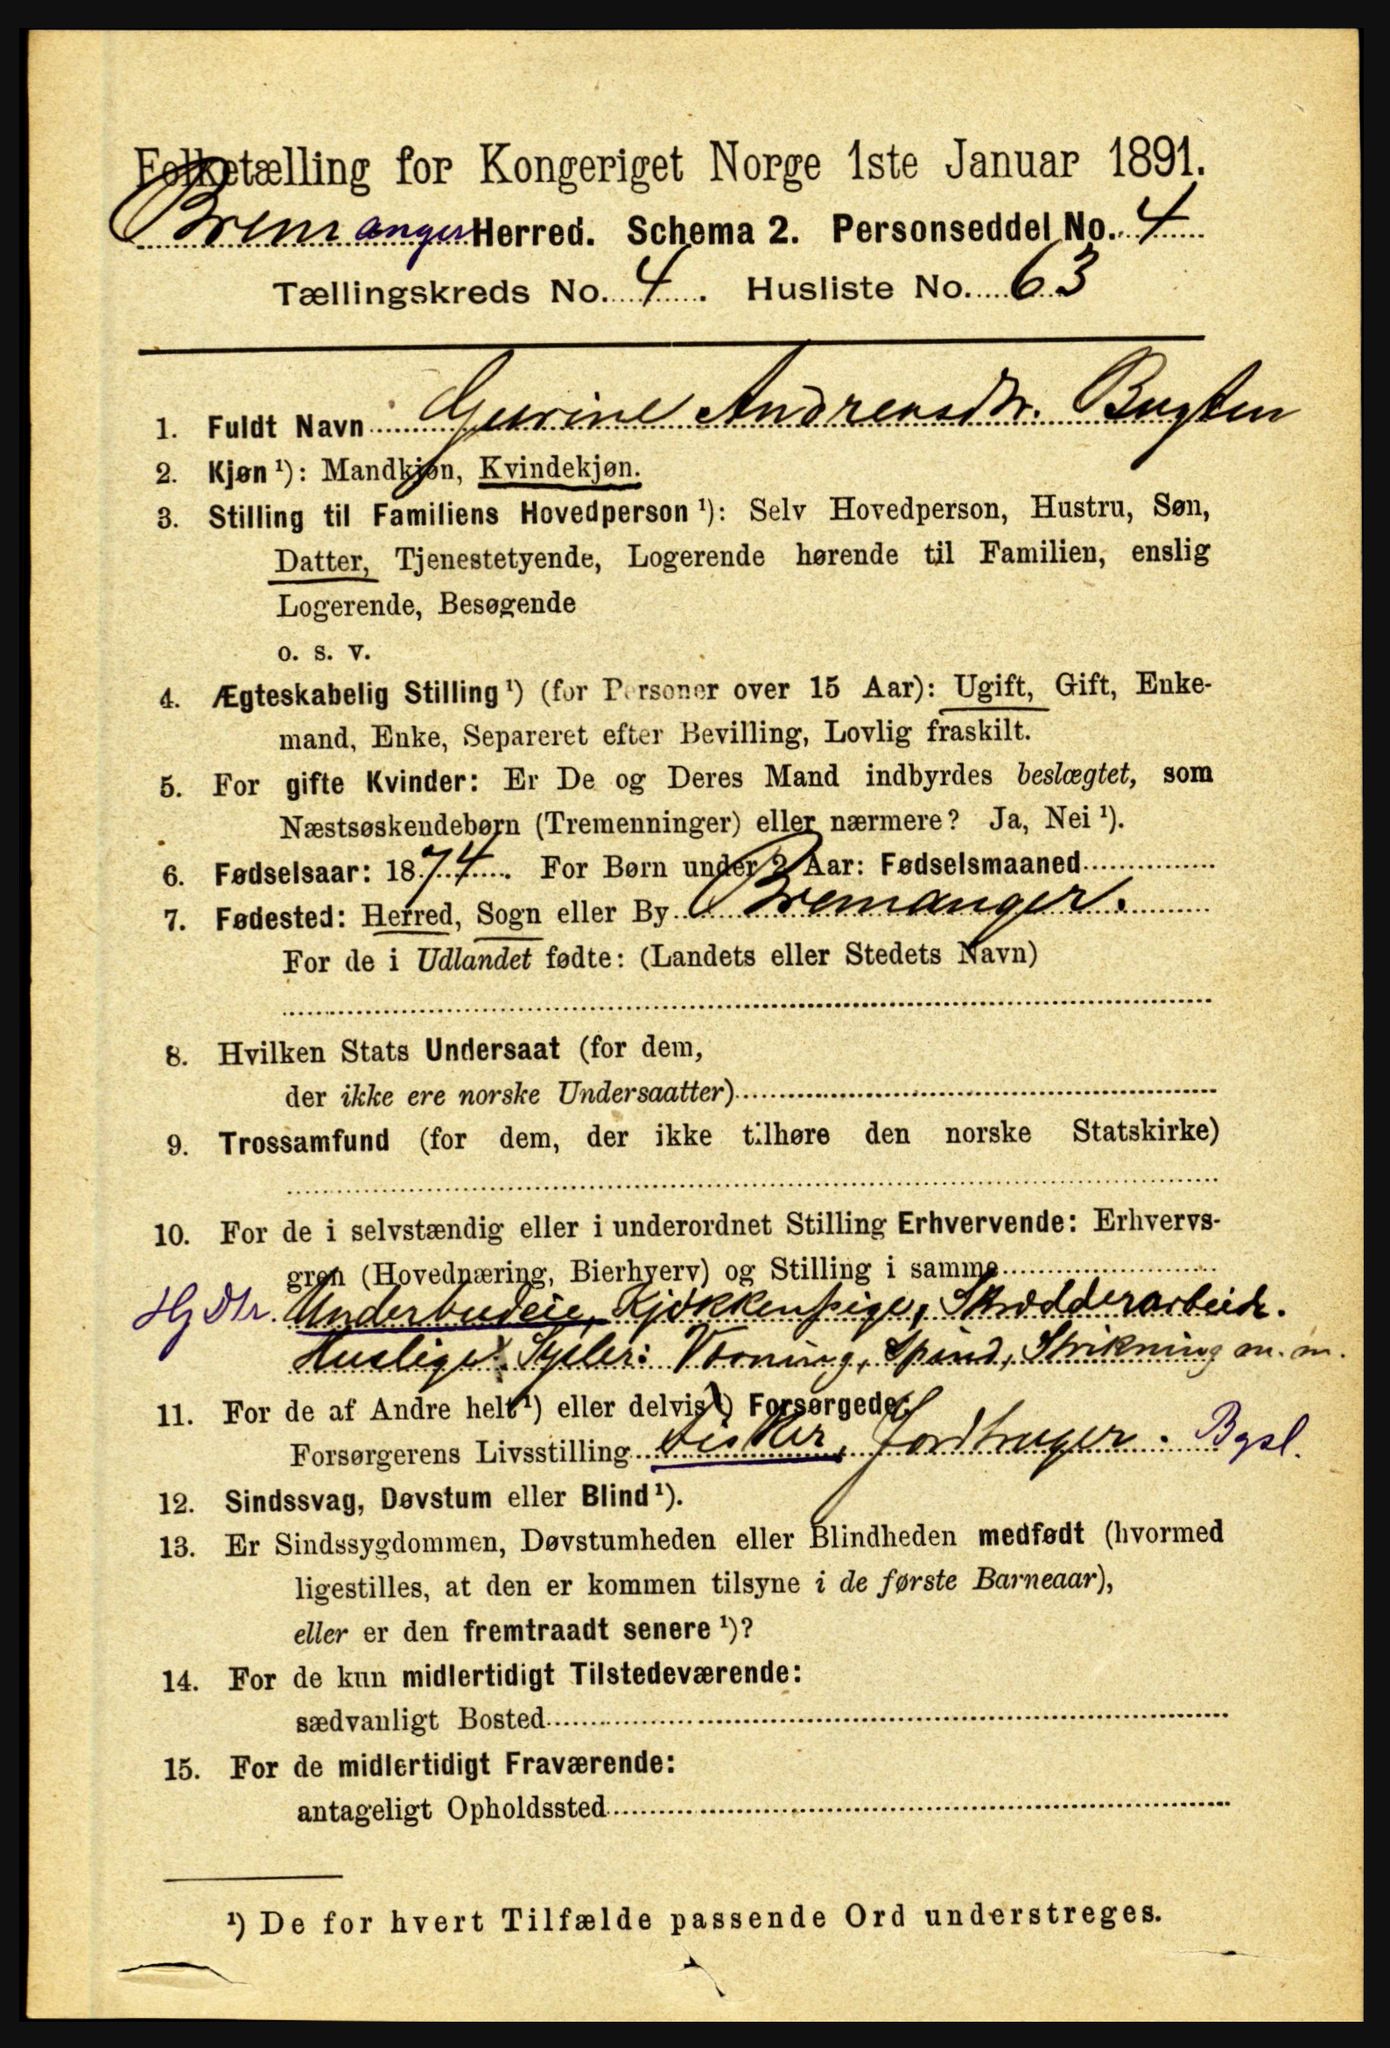 Folketælling for Kongeriget Norge 1ste Januar 1891.
Bremanger Herred. Schema 2. Personseddel No. 4
Tællingskreds No. 4. Husliste No. 63
1. Fuldt Navn Gurine Andreasdtr. Bugten
2. Kjøn ¹): Mandkjøn, Kvindekjøn.
3. Stilling til Familiens Hovedperson ¹): Selv Hovedperson, Hustru, Søn,
Datter, Tjenestetyende, Logerende hørende til Familien, enslig
Logerende, Besøgende
o. s. v.
4. Ægteskabelig Stilling ¹) (for Personer over 15 Aar): Ugift, Gift, Enke-
mand, Enke, Separeret efter Bevilling, Lovlig fraskilt.
5. For gifte Kvinder: Er De og Deres Mand indbyrdes beslægtet, som
Næstsøskendebørn (Tremenninger) eller nærmere? Ja, Nei ¹).
6. Fødselsaar: 1874. For Børn under 2 Aar: Fødselsmaaned
7. Fødested: Herred, Sogn eller By Bremanger.
For de i Udlandet fødte: (Landets eller Stedets Navn)
8. Hvilken Stats Undersaat (for dem,
der ikke ere norske Undersaatter)
9. Trossamfund (for dem, der ikke tilhøre den norske Statskirke)
10. For de i selvstændig eller i underordnet Stilling Erhvervende: Erhvervs-
gren (Hovednæring, Bierhverv) og Stilling i samme
Hj Dtr. Underbudeie, Kjøkkenpige, Skrædderarbeide.
Huslige Sysler: Vævning, Spind, Strikning m. m.
11. For de af Andre helt ¹) eller delvis ¹) Forsørgede:
Forsørgerens Livsstilling Fisker, Jordbruger. Bgsl.
12. Sindssvag, Døvstum eller Blind ¹).
13. Er Sindssygdommen, Døvstumheden eller Blindheden medfødt (hvormed
ligestilles, at den er kommen tilsyne i de første Barneaar),
eller er den fremtraadt senere ¹)?
14. For de kun midlertidigt Tilstedeværende:
sædvanligt Bosted
15. For de midlertidigt Fraværende:
antageligt Opholdssted
¹) De for hvert Tilfælde passende Ord understreges.